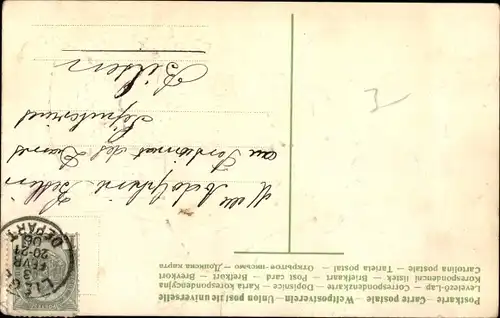 Postkarte — Carte postale — Weltpostverein — Union postale universelle
Levelező-Lap — Korrespondenzkarte — Dopisnice — Karta korespondencyjna
Korespondenční lístek — Briefkaart — Post card — Brefkort — Brevkort
Cartolina postale — Tarjeta postal — Открытое письмо — Дописна карта
Melle
au Pensionnat des Dames
Bilsen
LIÉGE
3
FEVR
20-21
06
DEPART
3